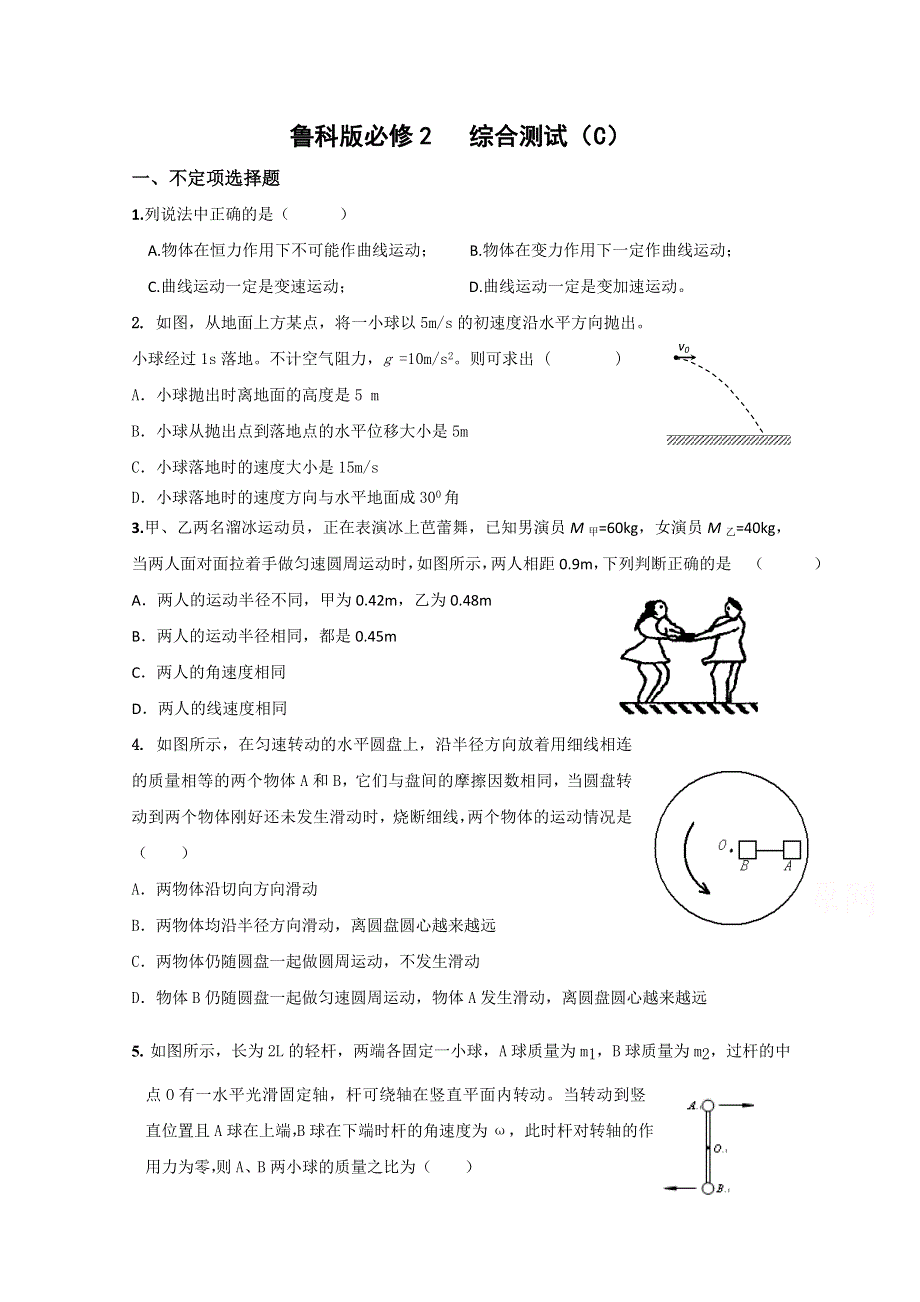 鲁科版必修2　综合测试（C）
一、不定项选择题
1.列说法中正确的是（　　）
A.物体在恒力作用下不可能作曲线运动；　B.物体在变力作用下一定作曲线运动；
C.曲线运动一定是变速运动；　D.曲线运动一定是变加速运动。
2. 如图，从地面上方某点，将一小球以5m/s的初速度沿水平方向抛出。
小球经过1s落地。不计空气阻力，g =10m/s²。则可求出（　　）
v₀
A．小球抛出时离地面的高度是5 m
B．小球从抛出点到落地点的水平位移大小是5m
C．小球落地时的速度大小是15m/s
D．小球落地时的速度方向与水平地面成30⁰角
3.甲、乙两名溜冰运动员，正在表演冰上芭蕾舞，已知男演员M甲=60kg，女演员M乙=40kg，
当两人面对面拉着手做匀速圆周运动时，如图所示，两人相距0.9m，下列判断正确的是　（　　）
A．两人的运动半径不同，甲为0.42m，乙为0.48m
B．两人的运动半径相同，都是0.45m
C．两人的角速度相同
D．两人的线速度相同
4. 如图所示，在匀速转动的水平圆盘上，沿半径方向放着用细线相连
的质量相等的两个物体A和B，它们与盘间的摩擦因数相同，当圆盘转
动到两个物体刚好还未发生滑动时，烧断细线，两个物体的运动情况是
（　　）
O B A
A．两物体沿切向方向滑动
B．两物体均沿半径方向滑动，离圆盘圆心越来越远
C．两物体仍随圆盘一起做圆周运动，不发生滑动
D．物体B仍随圆盘一起做匀速圆周运动，物体A发生滑动，离圆盘圆心越来越远
5. 如图所示，长为2L的轻杆，两端各固定一小球，A球质量为m₁，B球质量为m₂，过杆的中
点O有一水平光滑固定轴，杆可绕轴在竖直平面内转动。当转动到竖
直位置且A球在上端，B球在下端时杆的角速度为ω，此时杆对转轴的作
用力为零，则A、B两小球的质量之比为（　　）
A
O
B